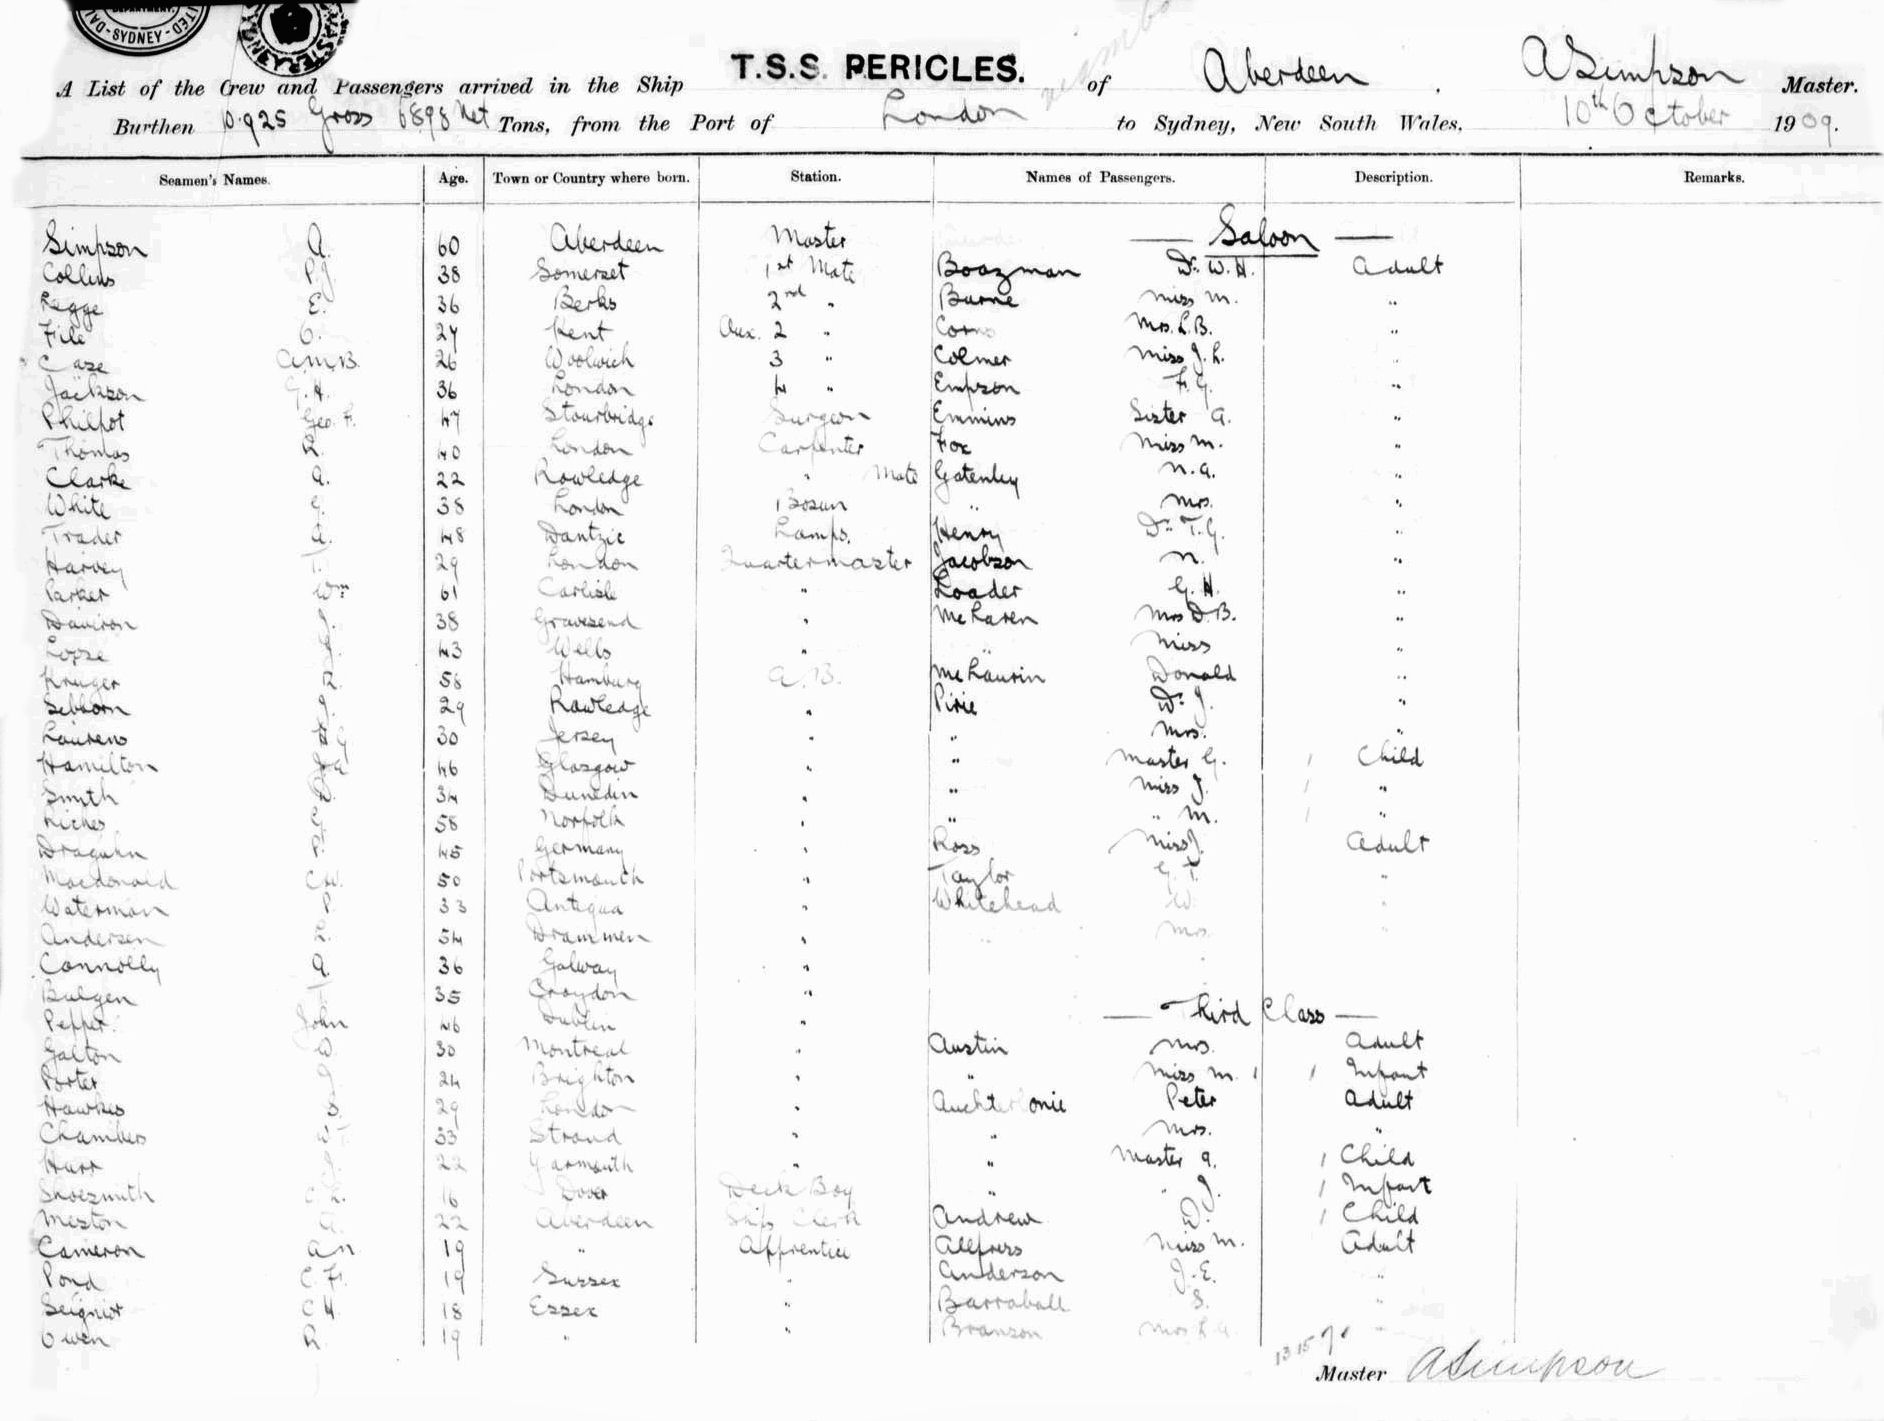 DEPARTMENT.
SYDNEY
T.S.S. PERICLES.
A List of the Crew and Passengers arrived in the Ship of Aberdeen, A Simpson Master.
Burthen 10,925 Gross 6898 Net Tons, from the Port of London to Sydney, New South Wales, 10th October 1909.
Seamen's Names. Age. Town or Country where born. Station. Names of Passengers. Description. Remarks.
— Saloon —
Simpson A. 60 Aberdeen Master
Collins P. 38 Somerset 1st Mate Boozman Dr. W. H. Adult
Legge E. 36 Berks 2nd " Burne Miss M. "
File 27 Kent Aux. 2 " Mrs. L.B. "
Case A.M.B. 26 Woolwich 3 " Colmer Miss J. L.
Jackson G. H. 36 London 4 " Empson F. G. "
Philpot Geo. F. 47 Stourbridge Surgeon Emmins Sister A. "
Thomas R. 40 London Carpenter Fox Miss M. "
Clarke A. 22 Rowledge " Mate Gatenley N. A. "
White G. 38 London Bosun " Mrs. "
Trader A. 48 Dantzic Lamps. Henry Dr. T. G. "
Harvey 29 London Quartermaster Jacobson N. "
Parker Wm 61 Carlisle " Loader G. H. "
38 Gravesend " McLaren Mrs D. B. "
Loose 43 Wells " " Miss "
Kruger R. 58 Hamburg A.B. McLaurin Donald "
Sebborn 29 Rowledge " Pirie Dr. J. "
Laurens 30 Jersey " " Mrs. "
Hamilton 46 Glasgow " " Master G. Child
Smith 34 Dunedin " " Miss J. "
Riches 58 Norfolk " " " M. "
Draguhn 45 Germany " Ross Miss J. Adult
Macdonald 50 Portsmouth " Taylor G. T. "
Waterman 33 Antigua " Whitehead W. "
Andersen 54 Drammen " " Mrs. "
Connolly A. 36 Galway "
Bulgen 35 Croydon "
— Third Class —
Pepper John 46 Dublin "
Galton W. 30 Montreal " Austin Mrs. Adult
Porter 24 Brighton " " Miss M. Infant
Hawkes 29 London " Auchterlonie Peter Adult
Chambers 33 Strood " " Mrs. "
Hurr 22 Yarmouth " " Master A. Child
Shoesmith 16 Dover Deck Boy " " J. Infant
Meston A. 22 Aberdeen Ship Clerk Andrew D. Child
Cameron 19 " Apprentice Allpress Miss M. Adult
Pond C. F. 19 Sussex " Anderson J. E. "
C H. 18 Essex " Barraball S. "
Owen R. 19 " " Branson Mrs L. A. "
Master A Simpson